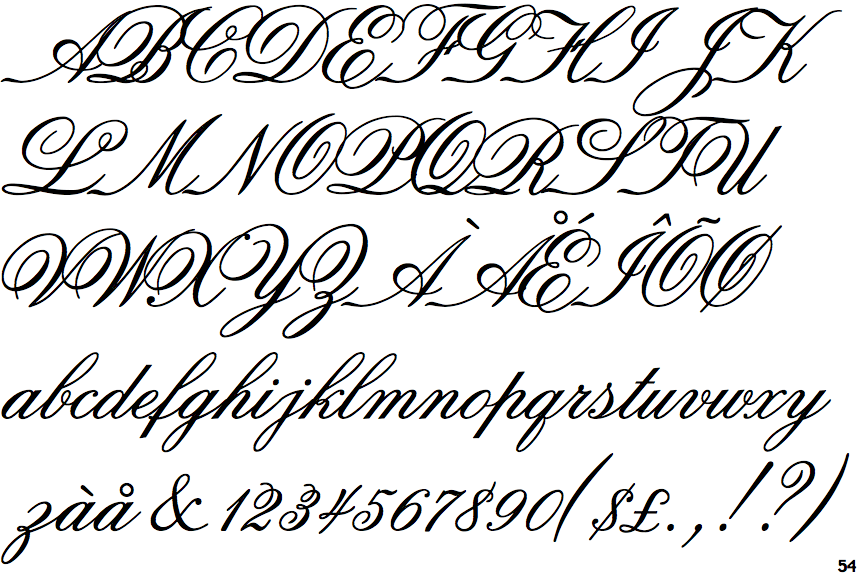 ABCDEFGHIJK
LMNOPQRSTU
VWXYZÀÅÉÎÕØ
abcdefghijklmnopqrstuvwxyz
zàå&1234567890($£.,!?)
54